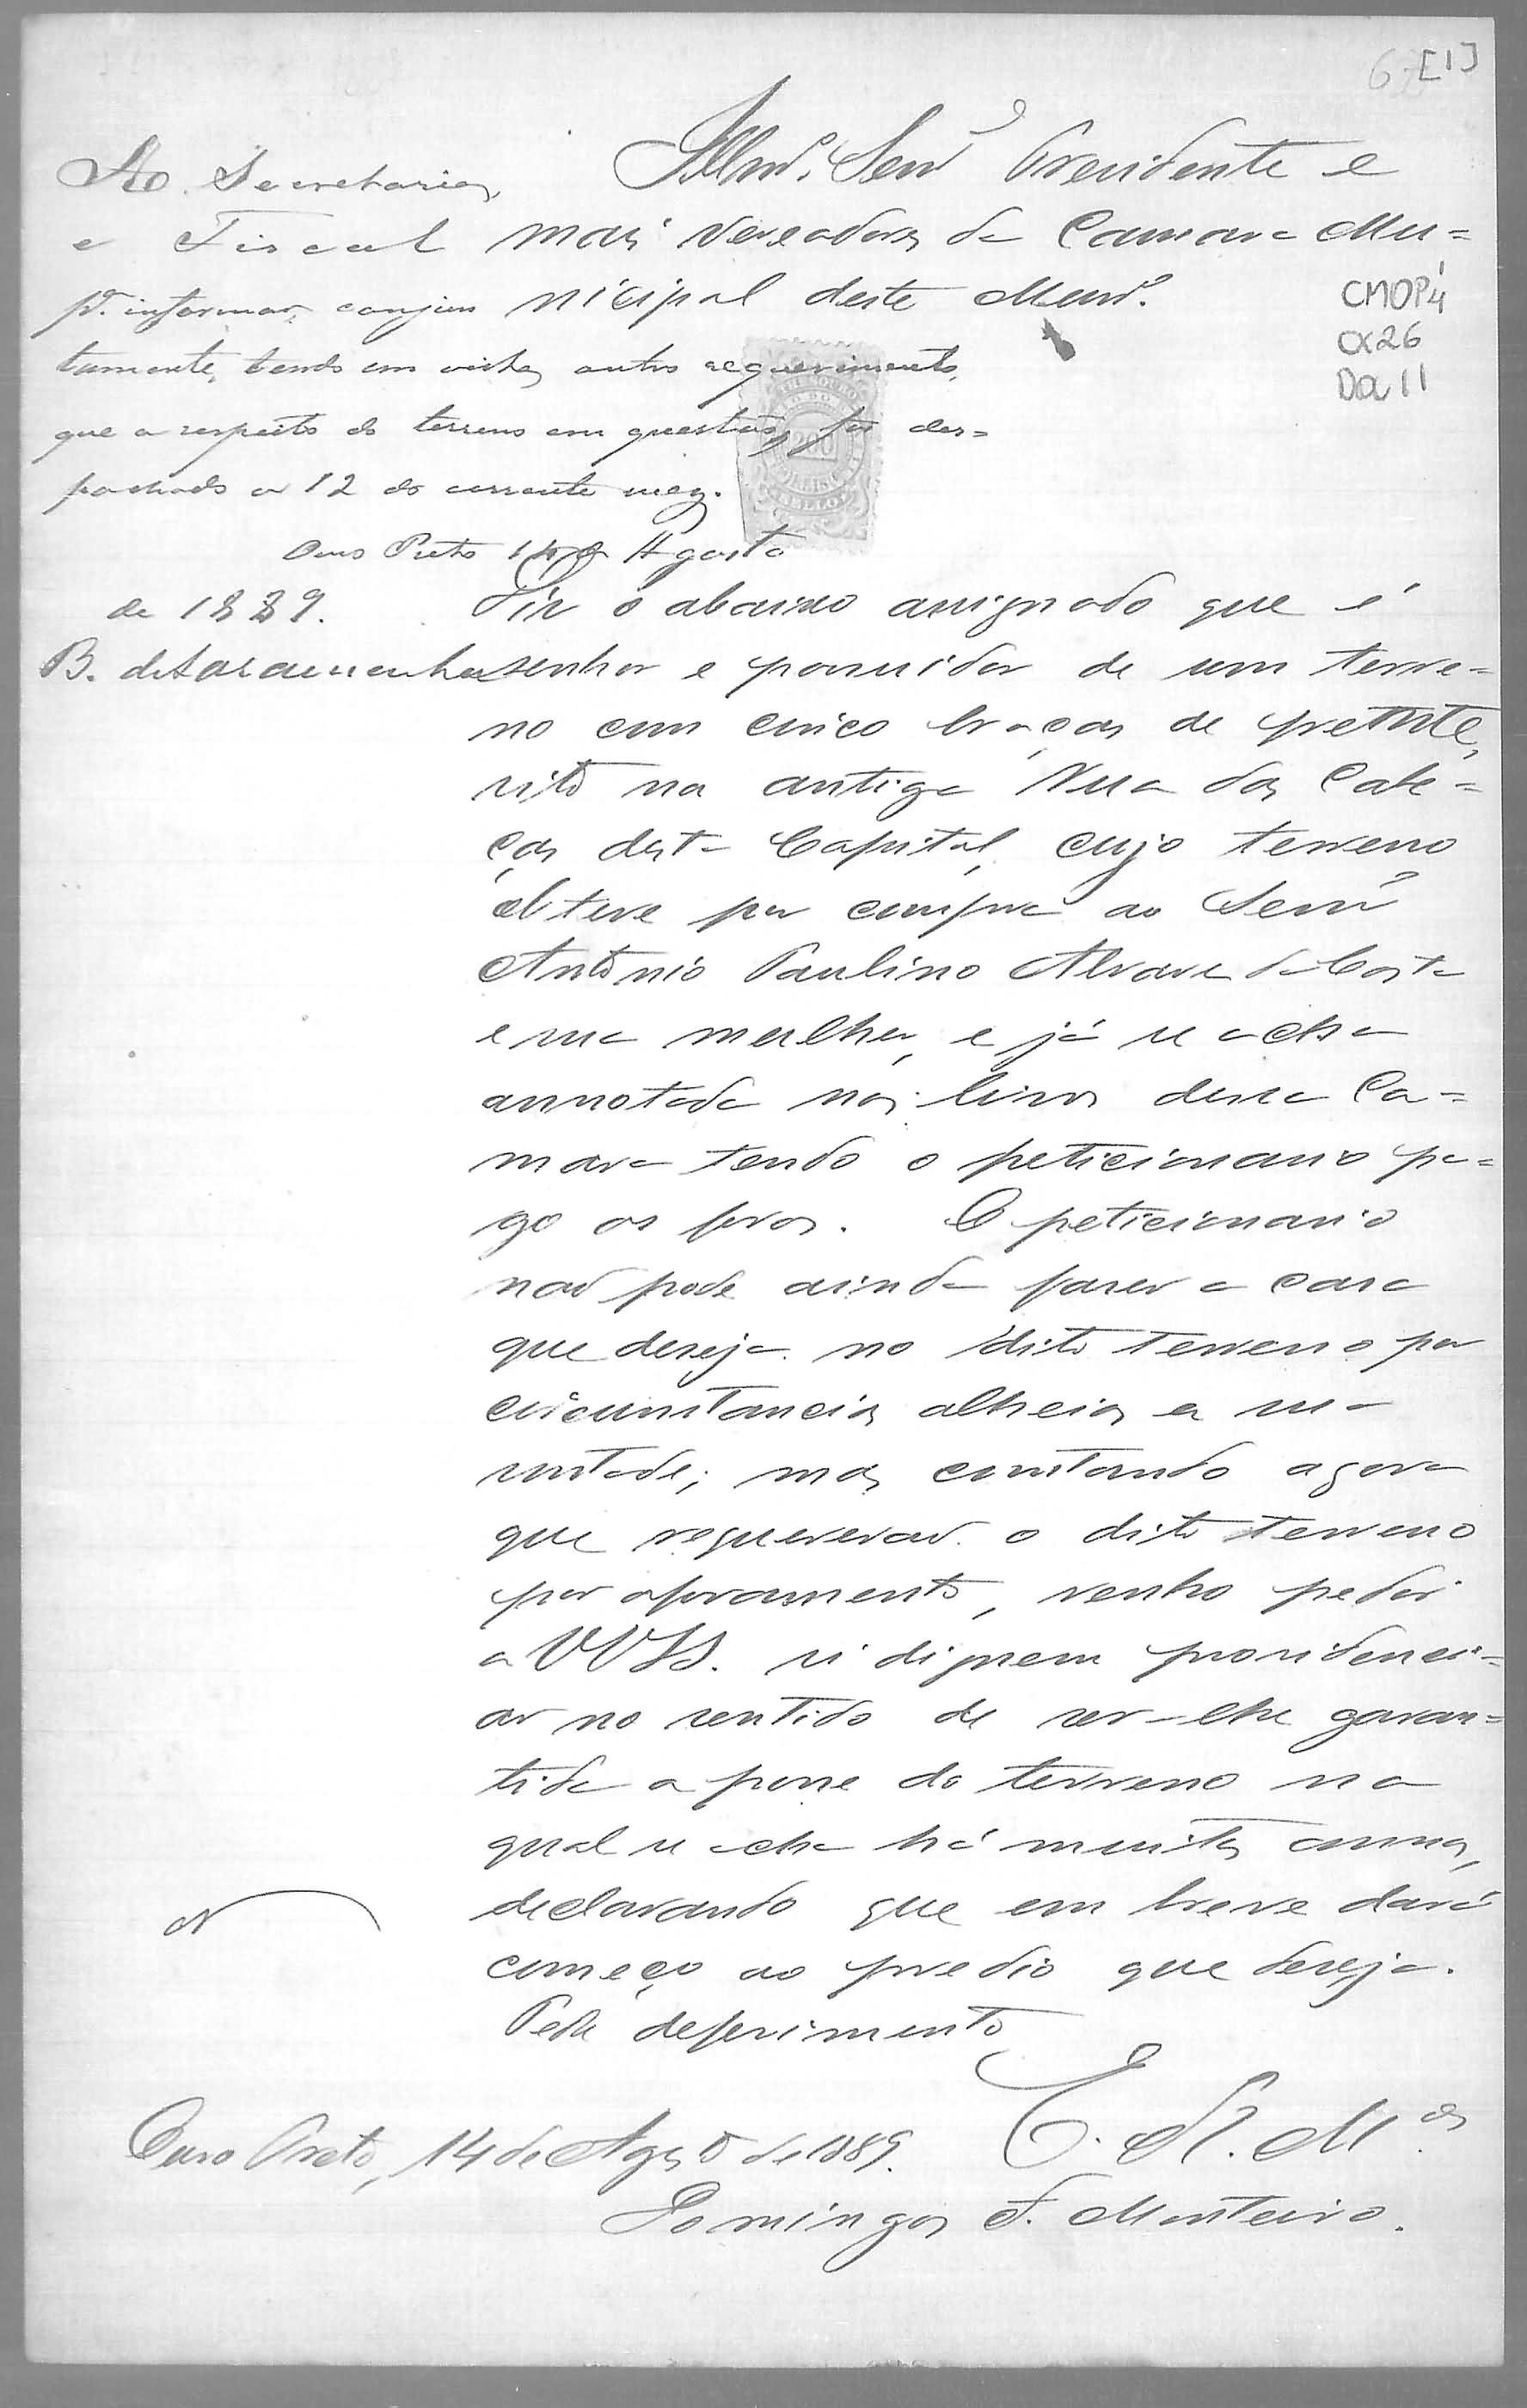 [1]
Illmo. Senr Presidente e
mais Vereadores da Camara Mu=
nicipal deste Munº.
CMOP4
CX26
Da 11
Ao Secretario,
e Fiscal
pª. informar, conjun
tamente, tendo em vista, outro requerimento,
que a respeito do terreno em questão, foi des=
pachado a 12 do corrente mez.
Ouro Preto 14 de Agosto
de 1889.
B. de Saramenha
200
Diz o abaixo assignado que é
senhor e possuidor de um terre-
no com cinco braças de frente,
sito na antiga Rua das Cabe-
ças desta Capital, cujo terreno
obteve por compra ao Senr
Antonio Paulino Alvares da Costa
e sua mulher, e já se acha
annotada nos livros dessa Ca=
mara tendo o peticionario pa=
go os foros. O peticionario
não pode ainda faser a casa
que deseja no dito terreno por
circunstancias alheias a su-
vontade; mas constando agora
que requererão o dito terreno
por aforamento, venho pedir
a VVSS. si dignem providenci=
ar no sentido de ser-lhe garan=
tida a posse do terreno na
qual se acha há muitos annos,
declarando que em breve dará
começo ao predio que deseja.
Pede deferimento
E. R. M.ce
Ouro Preto, 14 de Agsto de 1889.
Domingos F. Monteiro.